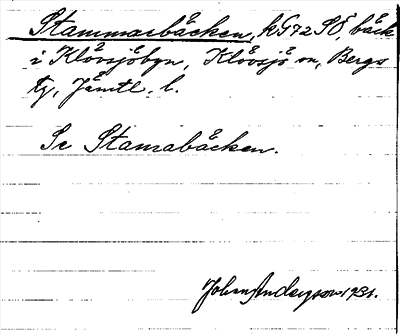 Stammarbäcken, k G72 SÖ, bäck
i Klövsjöbyn, Klövsjö sn, Bergs
tg, Jämtl. l.
Se Stamrabäcken.
John Anderson 1931.